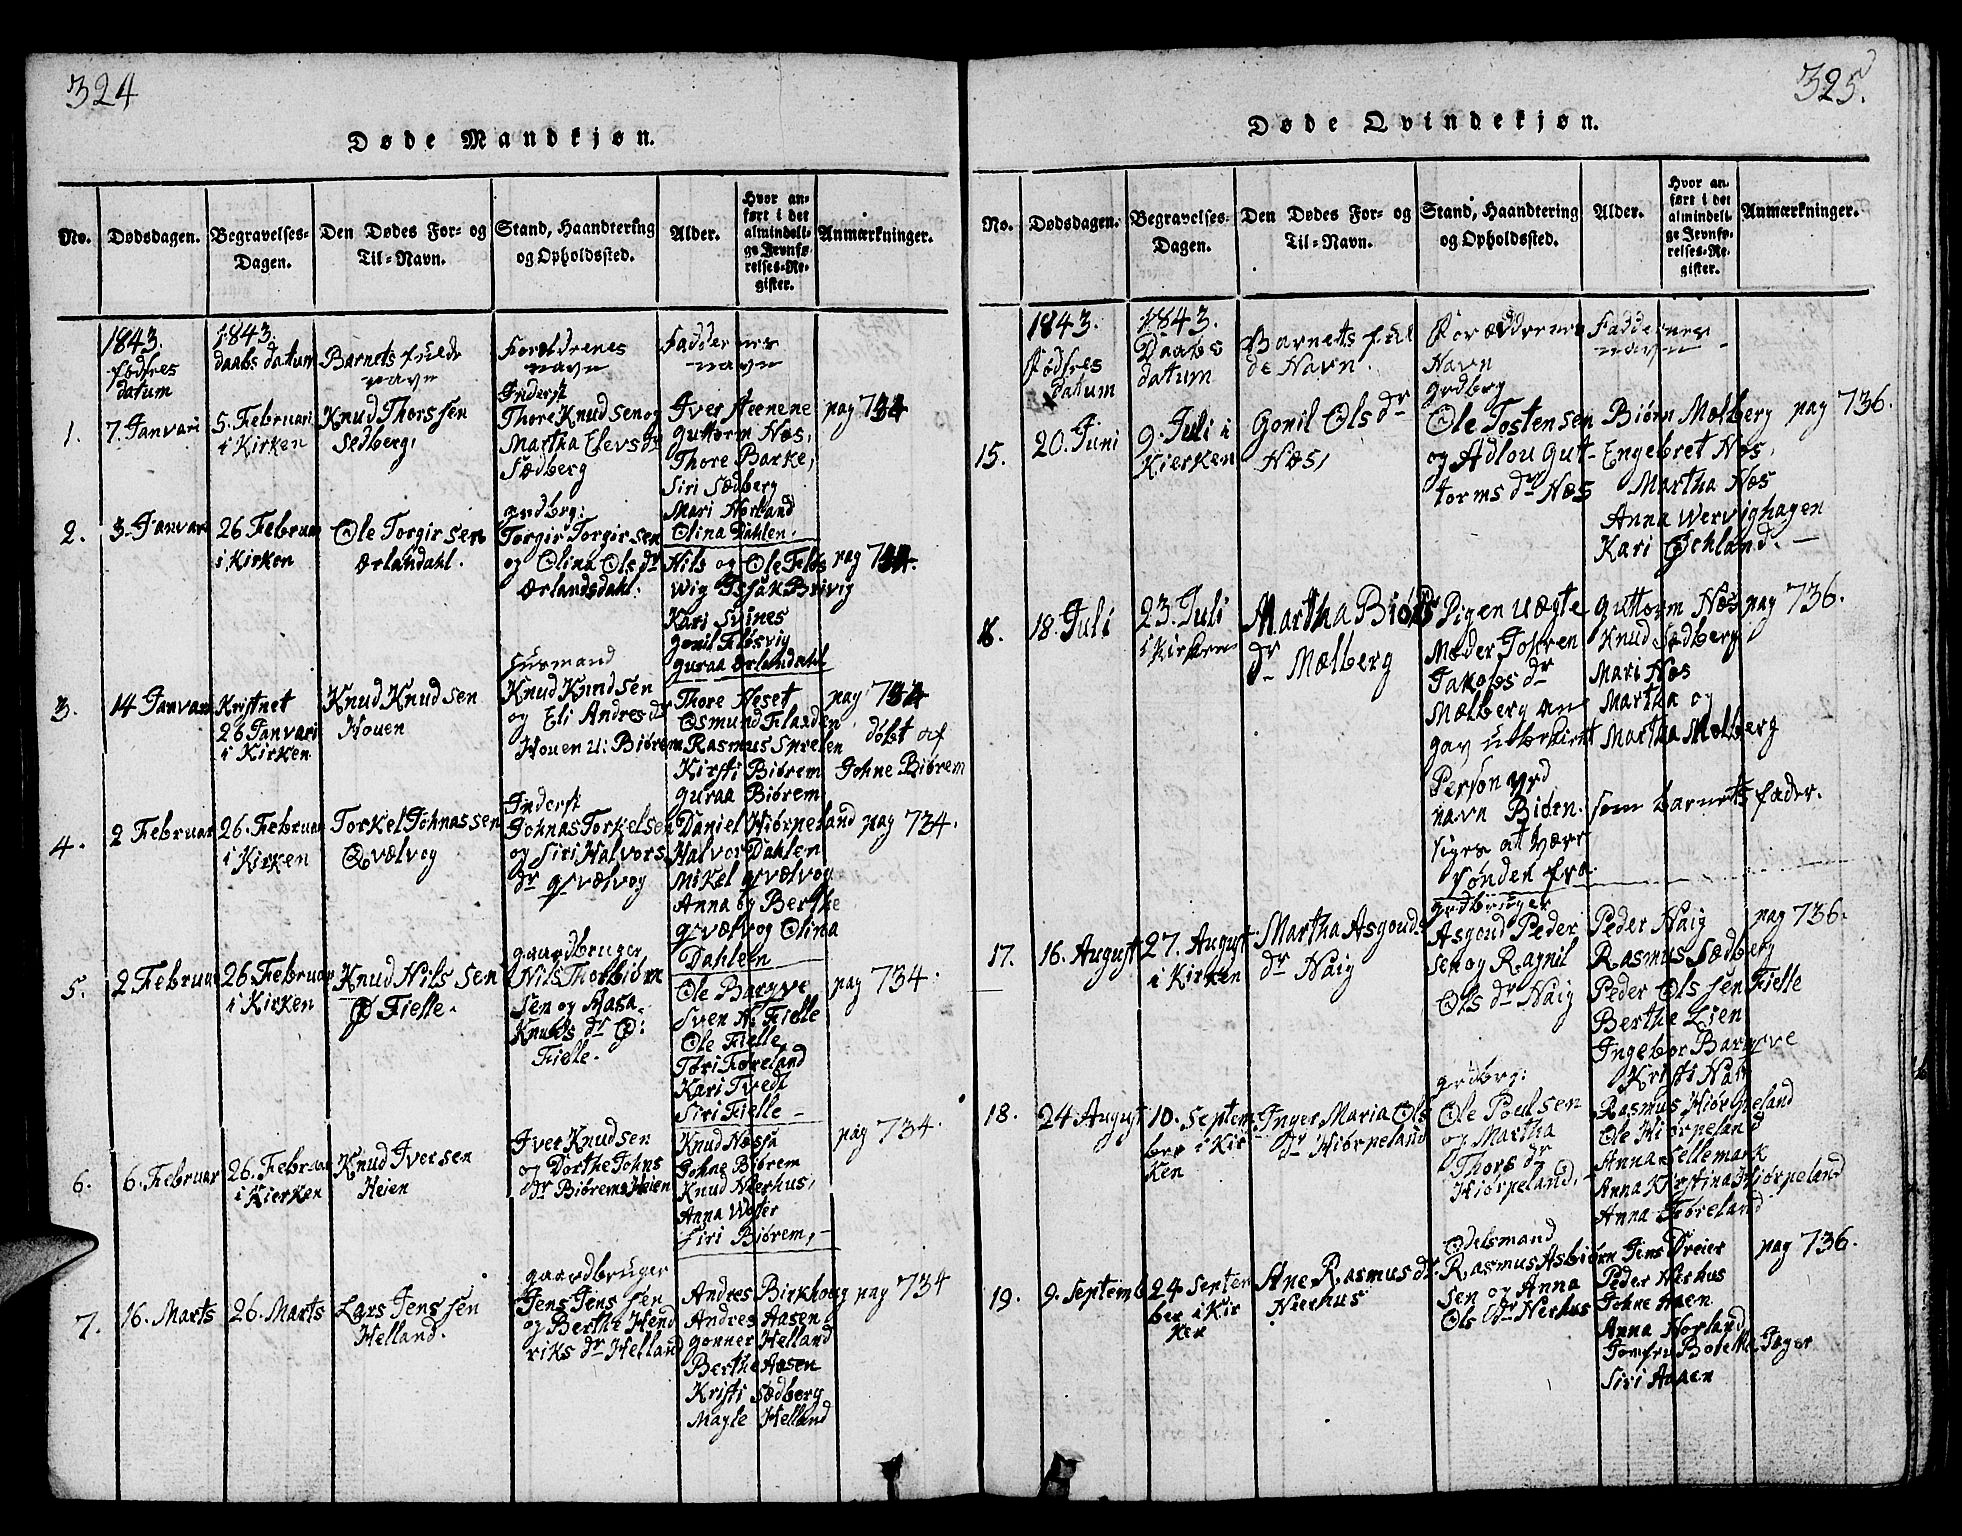 324
Døde Mandkjøn.
No. Dødsdagen. Begravelses-Dagen. Den Dødes For- og Til-Navn. Stand, Haandtering og Opholdssted. Alder. Hvor anført i det almindelige Jevnførelses-Register. Anmærkninger.
1843. fødsres datum
1843. daabs datum
Barnets fulde navn
Foreldrenes navn
Faddernes navn
1.
7. Januari
5. Februari
i Kirken
Knud Thorssen
Sedberg,
Inderst
Thore Knudsen og
Martha Elevs dr
Sædberg
Iver Steenene
Guttorm Næs,
Thore Barke,
Siri Sædberg
Mari Norland
Olina Dahlen.
pag 734
2.
3. Januar
26 Februar
i Kirken
Ole Torgirsen
Ærlandahl.
gardbrg:
Torgir Torgirsen
og Olina Ols dr
Ærlandsdahl.
Nils og Ole Fløs
wig Issak Brivig
Kari Svines
Gonil Fløsvig
Guraa Ærlandahl
pag 734.
3.
14 Januar
Kristnet
26 Januari
i Kirken
Knud Knudsen
Houen
Husmand
Knud Knudsen
og Eli Andres dr
Houen u: Biørem
Thore Neset
Osmund Flanden
Rasmus Sprelen
Kirsti Biørem
Guraa Biørem
pag 734
døbt af
Johne Biørem
4.
2 Februar
26. Februar
i Kirken
Torkel Johnassen
Qvælvog
Inderst
Johnas Torkelsen
og Siri Halvors
dr Qvælvog
Daniel Hiørpeland
Halvor Dahlen
Mikel Qvælvog
Anna og Berthe
Qvælvog Olina
Dahlen
pag 734.
5.
2 Februar
26 Februar
i Kirken
Knud Nilssen
Ø Fielle.
gaardbruger
Nils Thorbiørn
sen og Masa
Knuds dr Ø:
Fielle.
Ole Bargve
Sven N. Fielle
Ole Fielle
Tøri Føreland
Kari Tvedt
Siri Fielle
pag 734.
6.
6. Februar
26. Februar
i Kierken
Knud Iversen
Heien
Iver Knudsen
og Dorthe Johns
dr Biørem Heien
Knud Næssa
Johne Biørem
Knud Nierhus,
Anna Woster
Siri Biørem,
pag 734.
7.
16. Marts
26. Marts
Lars Jenssen
Helland.
gaardbruger
Jens Jenssen
og Berthe Hend
riks dr Helland
Andres Birkhoug
Andres Aasen
Gonner Helland
Berthe Aasen
Kristi Sædberg
Magle Helland
pag 734
325.
Døde Qvindekjøn.
No. Dødsdagen. Begravelses-Dagen. Den Dødes For- og Til-Navn. Stand, Haandtering og Opholdssted. Alder. Hvor anført i det almindelige Jevnførelses-Register. Anmærkninger.
1843. fødsres datum
1843. Daabs datum
Barnets fulde Navn.
Forældrenes Navn
Faddernes navn
15.
20. Juni
9. Juli i
Kierken
Gonil Ols dr
Næs,
grdbrg
Ole Tostensen
og Adlou Gut-
torms dr Næs
Biørn Mælberg
Engebret Næs,
Martha Næs
Anna Wervighagen
Kari Øchland.
pag 736.
16.
18. Juli
23. Juli
i Kirken
Martha Biørs
dr Mælberg
Pigen uægte
Moder Jokren
Jakobs dr
Mælberg an
gav ubekient
Person ved
navn Biørn. som barnets fader.
siges at være
sønden fra.
Guttorm Næs
Knud Sædberg
Mari Næs
Martha og
Martha Mælberg
pag 736.
17.
16. August
27. August
i Kirken
Martha Asgouds
dr Naig
grdbruger
Asgoud Peder
sen og Ragnil
Ols dr Naig
Peder Naig
Rasmus Sædberg
Peder Olssen Fielle
Berthe Lien
Ingebor Bargve
Kristi Naig
pag 736.
18.
24 August
10. Septem
ber i Kir
ken
Inger Maria Ols
dr Hiørpeland
grdbrg:
Ole Poulsen
og Martha
Thors dr
Hiørpeland.
Rasmus Hiørpeland
Ole Hiørpeland
Anna Sellemark
Anna Kristina Hiørpeland
Anna Føreland
19.
9. Septemb
24 Septem
ber i Kir
ken
Ane Rasmus dr
Nierhus
Odelsmand
Rasmus Asbiørn
sen og Anna
Ols dr Nerhus
Jens Dreier
Peder Nerhus
Johne Aaen
Anna Norland
Jomfru Botelle Jager
Siri Aaen
pag 736.